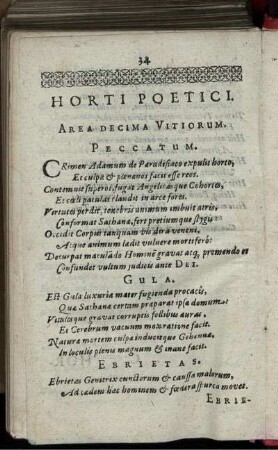 34
HORTI POETICI.
AREA DECIMA VITIORUM.
PECCATUM.
CRimen Adamum de Paradisiaco expulit horto,
Et culpæ & pœnæ nos facit esse reos.
Contemnit superos, fugat Angelicasque Cohortes,
Et cœli patulas claudit in arce fores.
Virtutes perdit, tenebris animum imbuit atris,
Conformat Sathanæ, fert pretiumque stygis
Occidit Corpus tanquam vis dira veneni,
Atque animum lædit vulnere mortifero:
Deturpat maculādo Hominē gravat atq; premendo et
Confundet vultum judicis ante DEI.
GULA.
Est Gula luxuriæ mater fugienda procacis,
Quæ Sathanæ certam præparat ipsa domum:
Vitulaque gravat corruptis follibus auras,
Et Cerebrum vacuum mox ratione facit.
Natura mortem culpa inducetque Gehennæ,
In loculis plenis magnum & inane facit.
EBRIETAS.
Ebrietas Genitrix cunctorum & caussa malorum,
Ad cædem hæc hominem & fœdera spurca movet.
EBRIE-